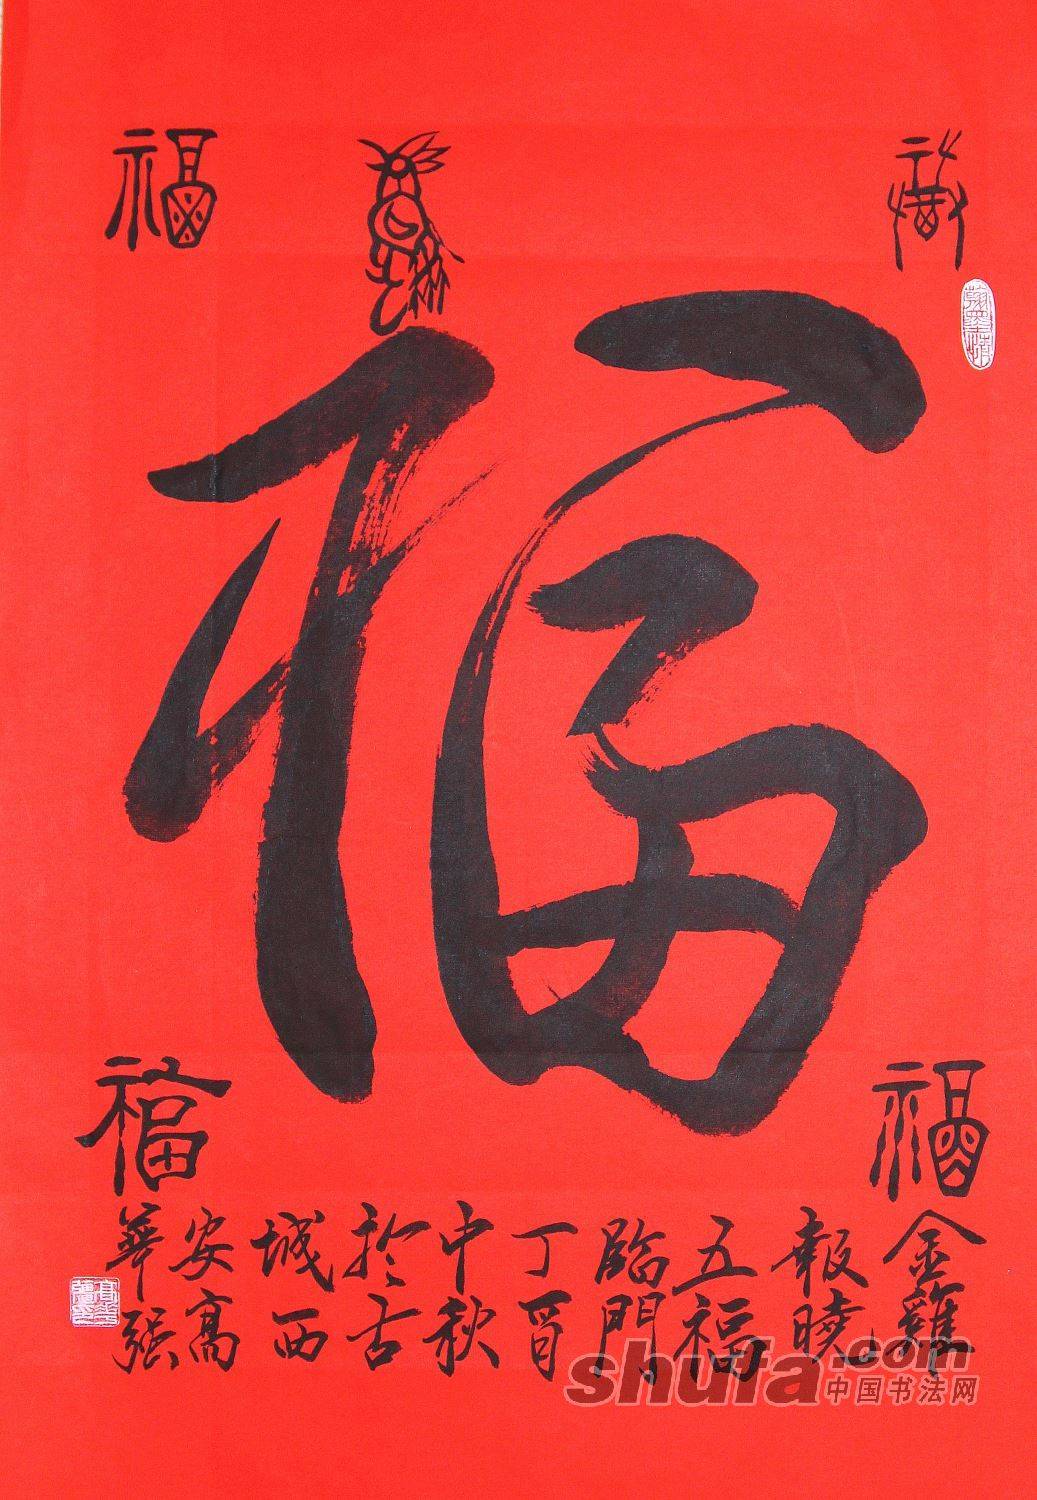 福
福
福
福
福
金雞
報曉
五福
臨門
丁酉
中秋
於古
城西
安高
華强
shufa.com
中国书法网